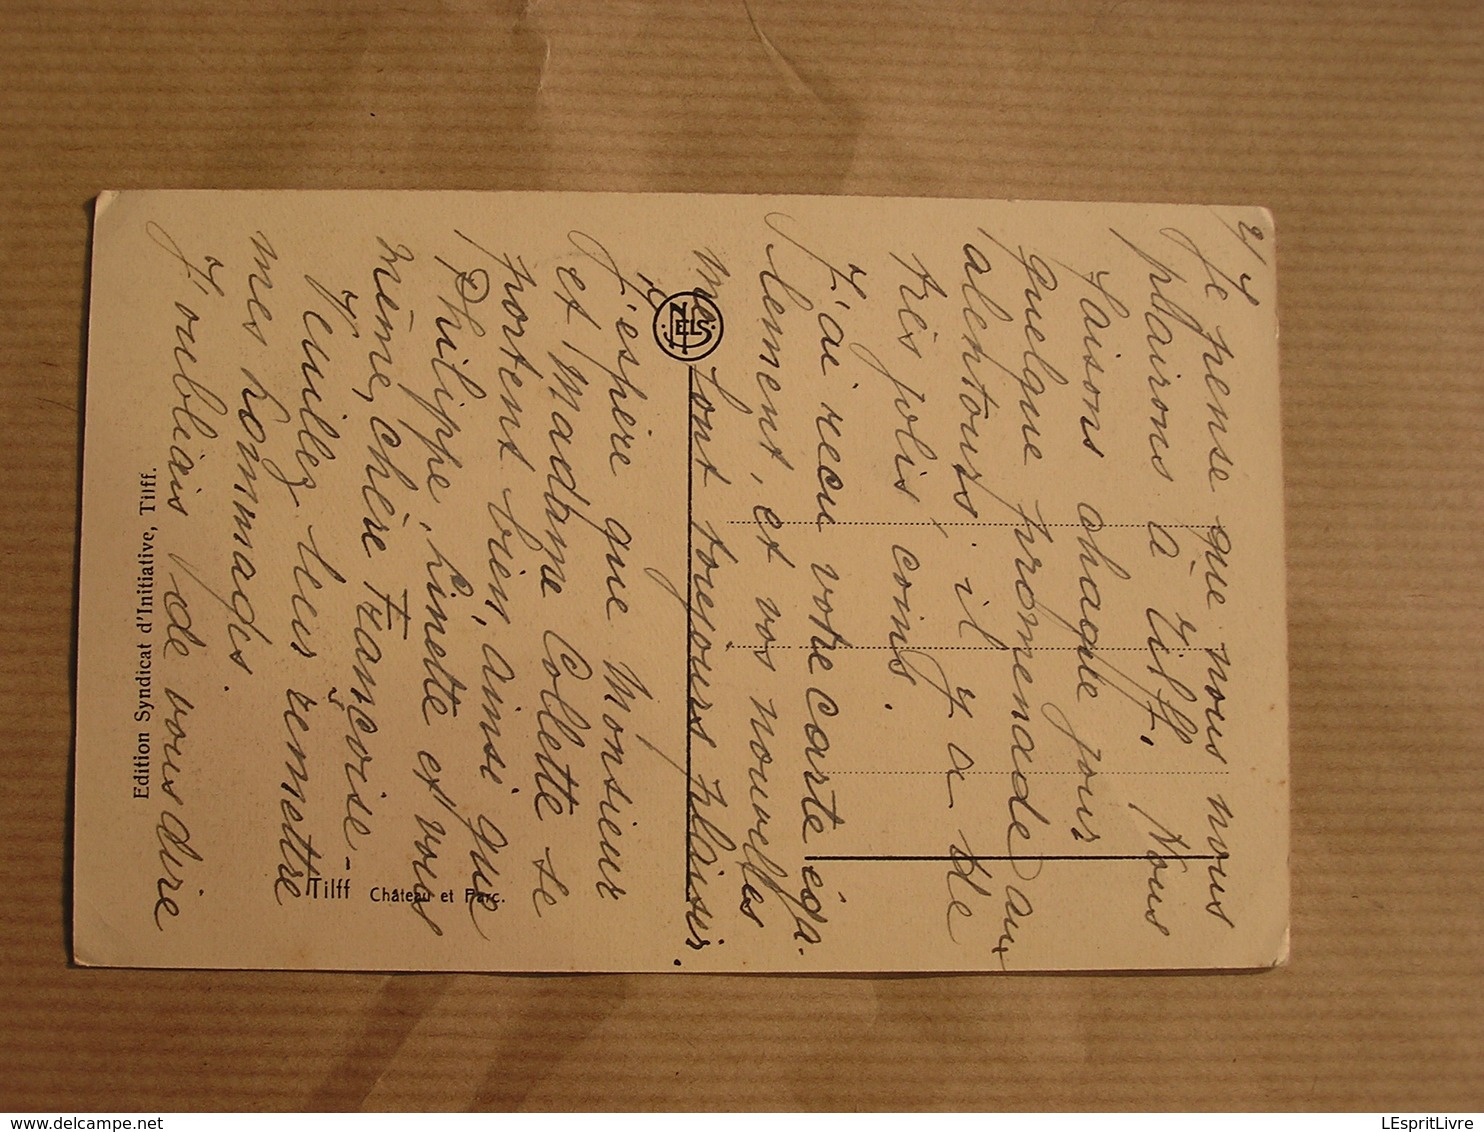 2/
Je pense que nous nous
plairons à Tilff. Nous
faisons chaque jour
quelque promenade aux
alentours; il y a de
très jolis coins.
J'ai recu votre carte éga-
lement, et vos nouvelles
me font toujours plaisir.
J'espère que Monsieur
et Madame Collette se
portent bien, ainsi que
Philippe, Linette et vous
même, chère Françoise-
Veuillez leur remettre
mes hommages.
J'oubliais de vous dire
NELS
Tilff Château et Parc.
Edition Syndicat d'Initiative, Tilff.
LEspritLivre
www.delcampe.net